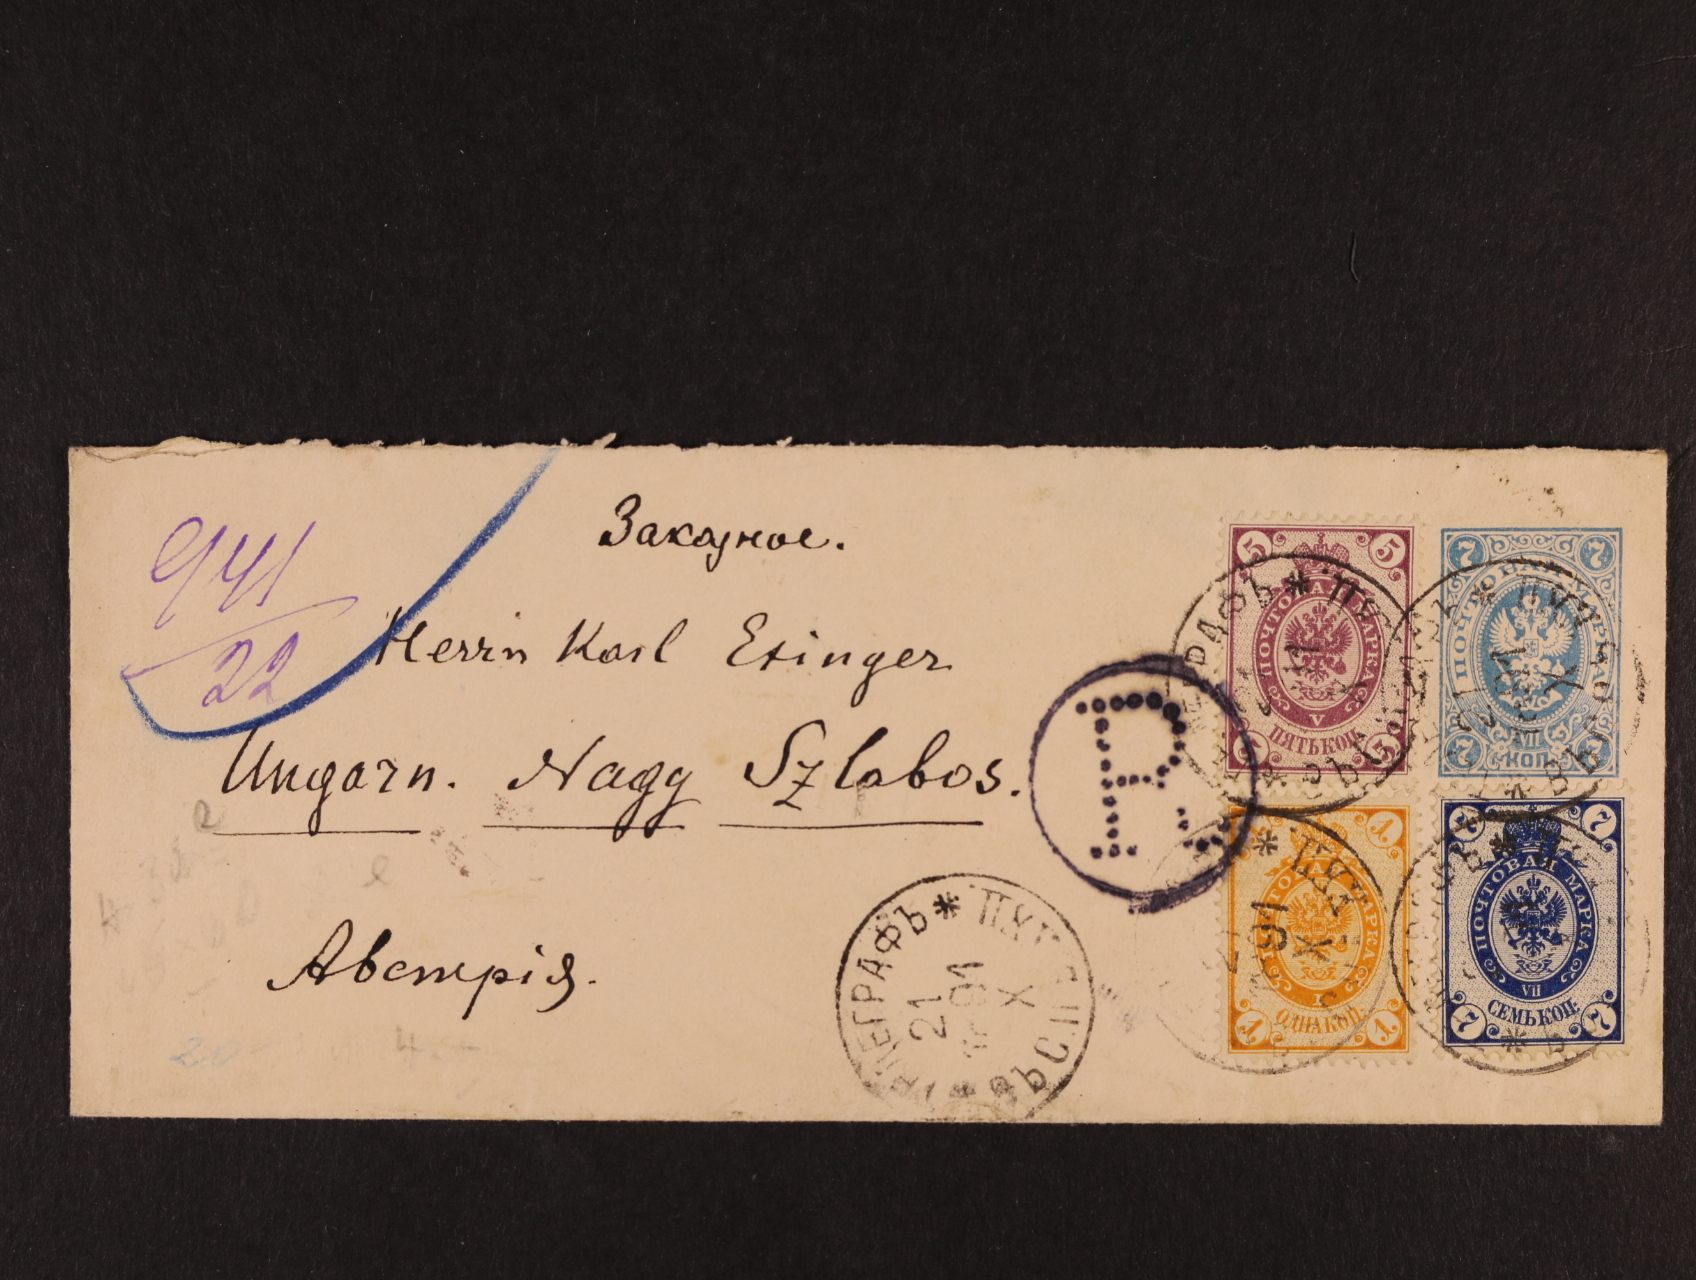 Заказное.
941
22
Herrn Karl Exinger
Ungarn. Nagy Szlabos.
Австрія.
20
R
21
91
X
5 5
ПОЧТОВАЯ МАРКА
V
ПЯТЬ КОП.
5 5
7 7
VII
КОП.
7 7
1
ПОЧТОВАЯ МАРКА
I
ОДНА КОП.
1 1
7 7
ПОЧТОВАЯ МАРКА
VII
СЕМЬ КОП.
7 7